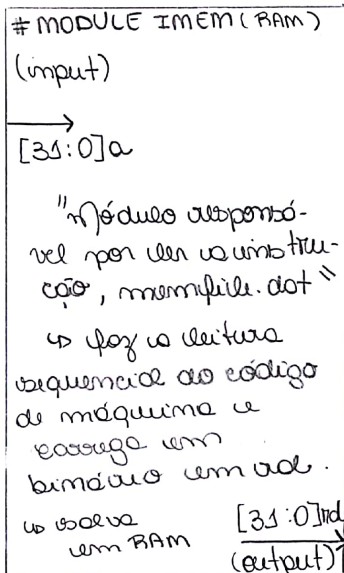 # MODULE IMEM (RAM)
(input)
[31:0]a
"Módulo responsá-
vel por ler a instru-
ção, memfile.dat"
↳ faz a leitura
sequencial do código
de máquina e
carrega em
binário em rd.
↳ salva [31:0]rd
em RAM (output)